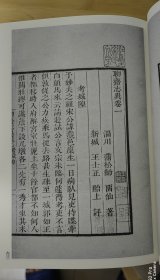 聊齋志異卷一
淄川 蒲松齡 留仙 著
新城 王士正 貽上 評
考城隍
予姊丈之祖宋公諱燾邑廩生一日病臥見吏持牒牽
白顛馬來云請赴試公言文宗未臨何遽得考吏不言
但敦促之公力疾乘馬從去路甚生疎至一城郭如王
者都移時入府廨宮室壯麗上坐十餘官都不知何人
惟關壯繆可識簷下設几墩各二先有一秀才坐其末